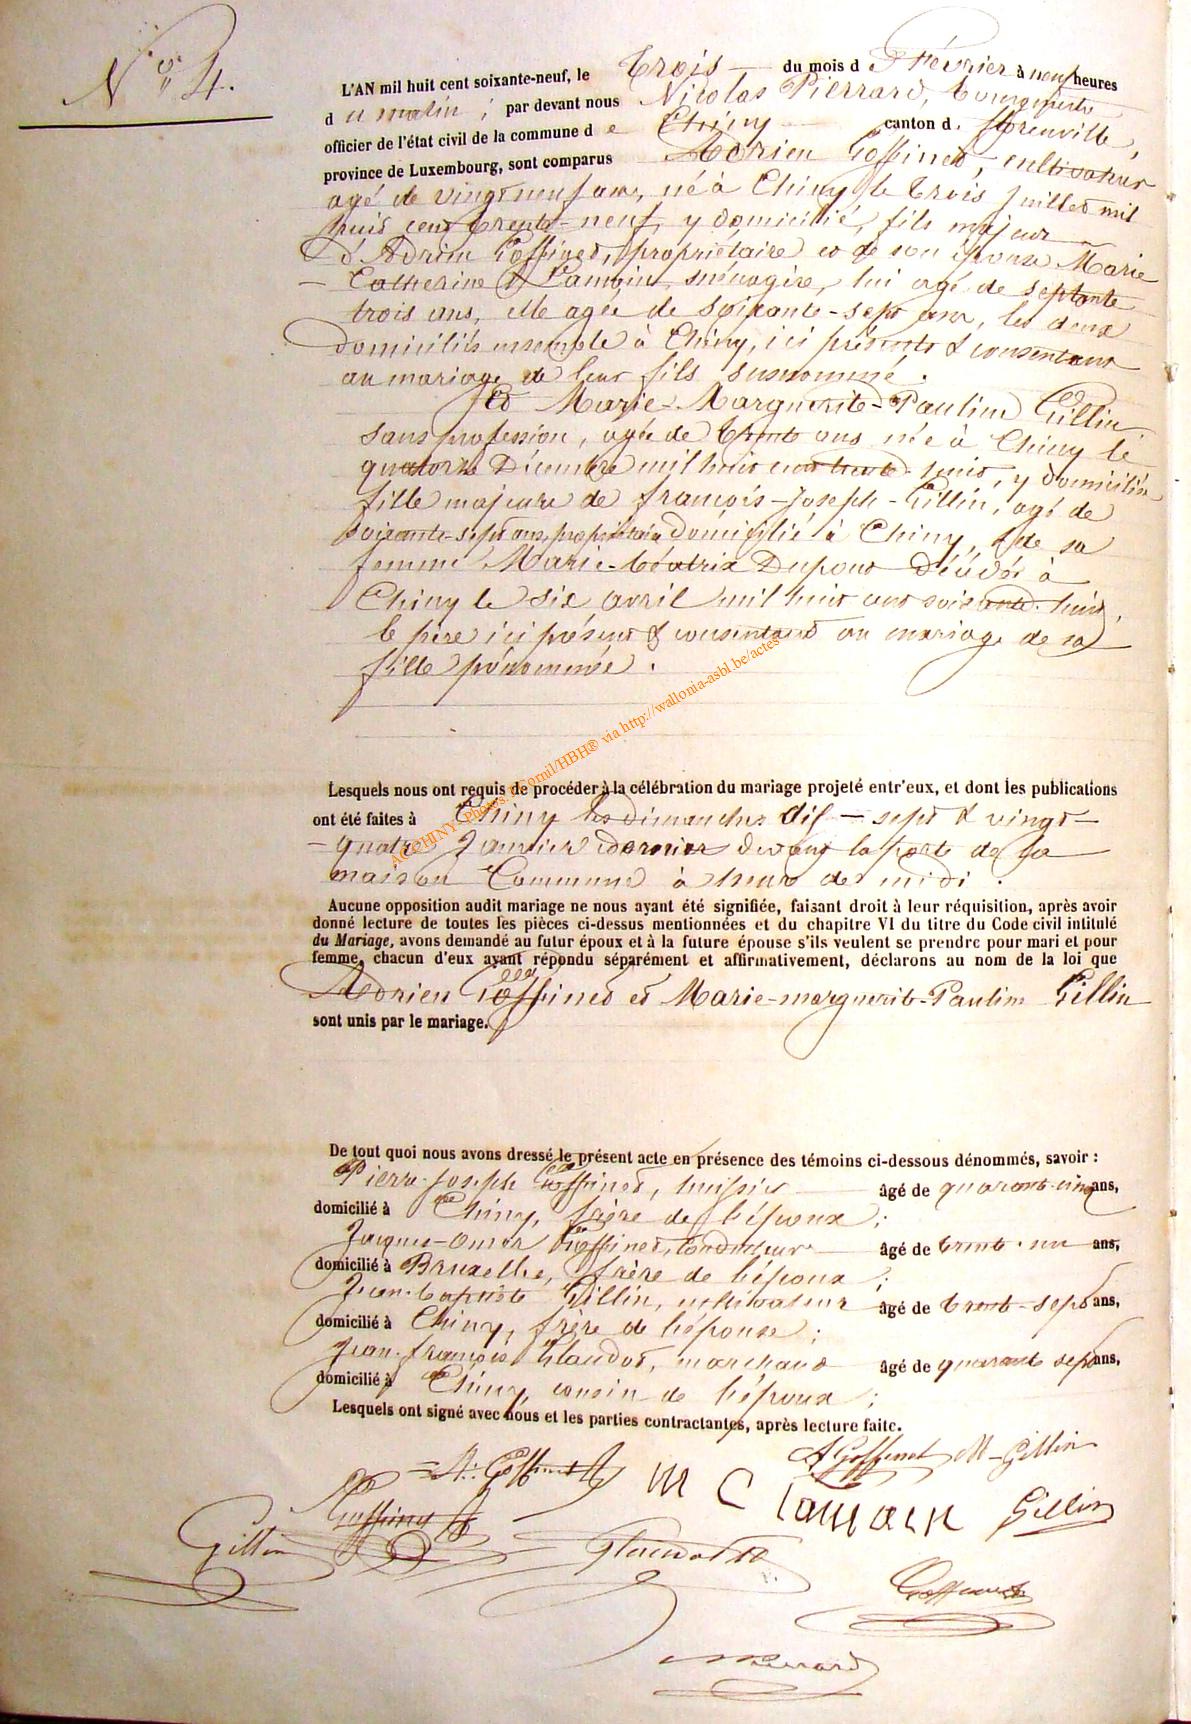 N° 4.
L'AN mil huit cent soixante-neuf, le trois du mois de Février à neuf heures
du matin, par devant nous Nicolas Pierrard, bourgmestre
officier de l'état civil de la commune de Chiny canton de Florenville,
province de Luxembourg, sont comparus Adrien Goffinet, cultivateur
agé de vingt neuf ans, né à Chiny le trois Juillet mil
huit cent trente-neuf, y domicilié, fils majeur
d'Adrien Goffinet, propriétaire et de son épouse Marie
Catherine Lamoin, ménagère, lui agé de septante
trois ans, elle agée de soixante-sept ans, les deux
domiciliés ensemble à Chiny, ici présents & consentant
au mariage de leur fils susnommé.
Et Marie-Marguerite-Pauline Gillin,
sans profession, agée de trente ans née à Chiny le
quatorze Décembre mil huit cent trente-huit, y domiciliée
fille majeure de françois-Joseph-Gillin, agé de
soixante-sept ans, propriétaire domicilié à Chiny, & de sa
femme Marie-béatrix Dupont décédée à
Chiny le six avril mil huit cent soixante-huit,
le père ici présent & consentant au mariage de sa
fille prénommée.
ACCHINY- Photos.J.Cornil/HBH® via http://wallonia-asbl.be/actes
Lesquels nous ont requis de procéder à la célébration du mariage projeté entr'eux, et dont les publications
ont été faites à Chiny les dimanches dif-sept & vingt-
-quatre Janvier dernier devant la porte de la
maison Commune à heure de midi.
Aucune opposition audit mariage ne nous ayant été signifiée, faisant droit à leur réquisition, après avoir
donné lecture de toutes les pièces ci-dessus mentionnées et du chapitre VI du titre du Code civil intitulé
du Mariage, avons demandé au futur époux et à la future épouse s'ils veulent se prendre pour mari et pour
femme, chacun d'eux ayant répondu séparément et affirmativement, déclarons au nom de la loi que
Adrien Goffinet et Marie-marguerite-Pauline Gillin
sont unis par le mariage.
De tout quoi nous avons dressé le présent acte en présence des témoins ci-dessous dénommés, savoir :
Pierre-Joseph Goffinet, huissier âgé de quarante-cinq ans,
domicilié à Chiny, frère de l'époux;
Jacques-omer Goffinet, conducteur âgé de trente-un ans,
domicilié à Bruxelles, frère de l'époux;
Jean-baptiste Gillin, cultivateur âgé de trente-sept ans,
domicilié à Chiny, frère de l'épouse;
Jean-françois Glaudot, marchand âgé de quarante sept ans,
domicilié à Chiny, cousin de l'époux;
Lesquels ont signé avec nous et les parties contractantes, après lecture faite.
A Goffinet M-Gillin
A. Goffinet M C Lamoin Gillin
Goffinet
Gillin Glaudot
Goffinet
Pierrard